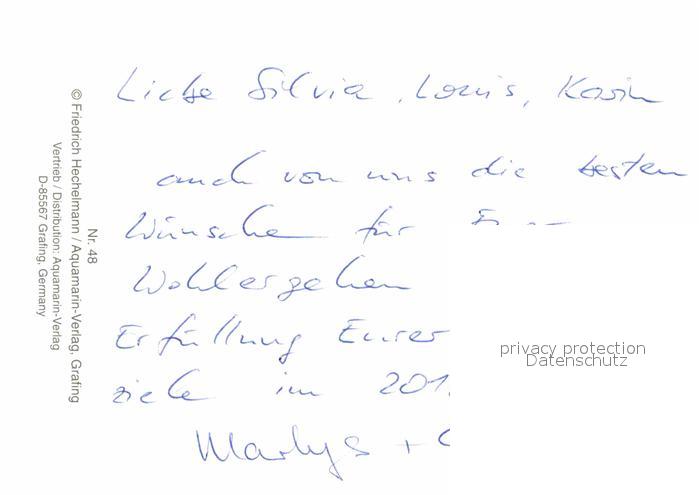 Liebe Silvia, Louis, Karin
auch von uns die besten
Wünsche für
Wohlergehen
Erfüllung Eurer
Ziele im 201
Marlys +
Nr. 48
© Friedrich Hechelmann / Aquamarin-Verlag, Grafing
Vertrieb / Distribution: Aquamarin-Verlag
D-85567 Grafing, Germany
privacy protection
Datenschutz